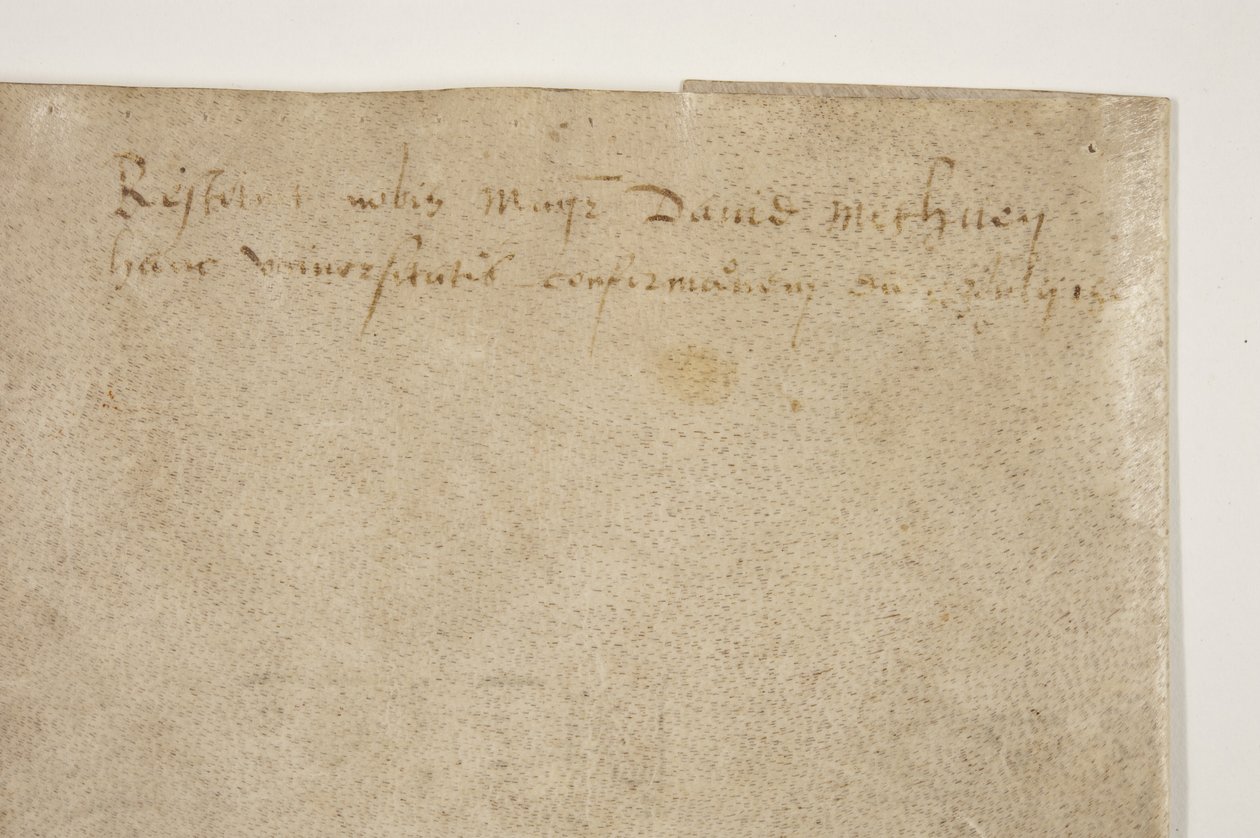 Restituit nobis Magr David Methuen
hanc vniuersitatis confirmationem